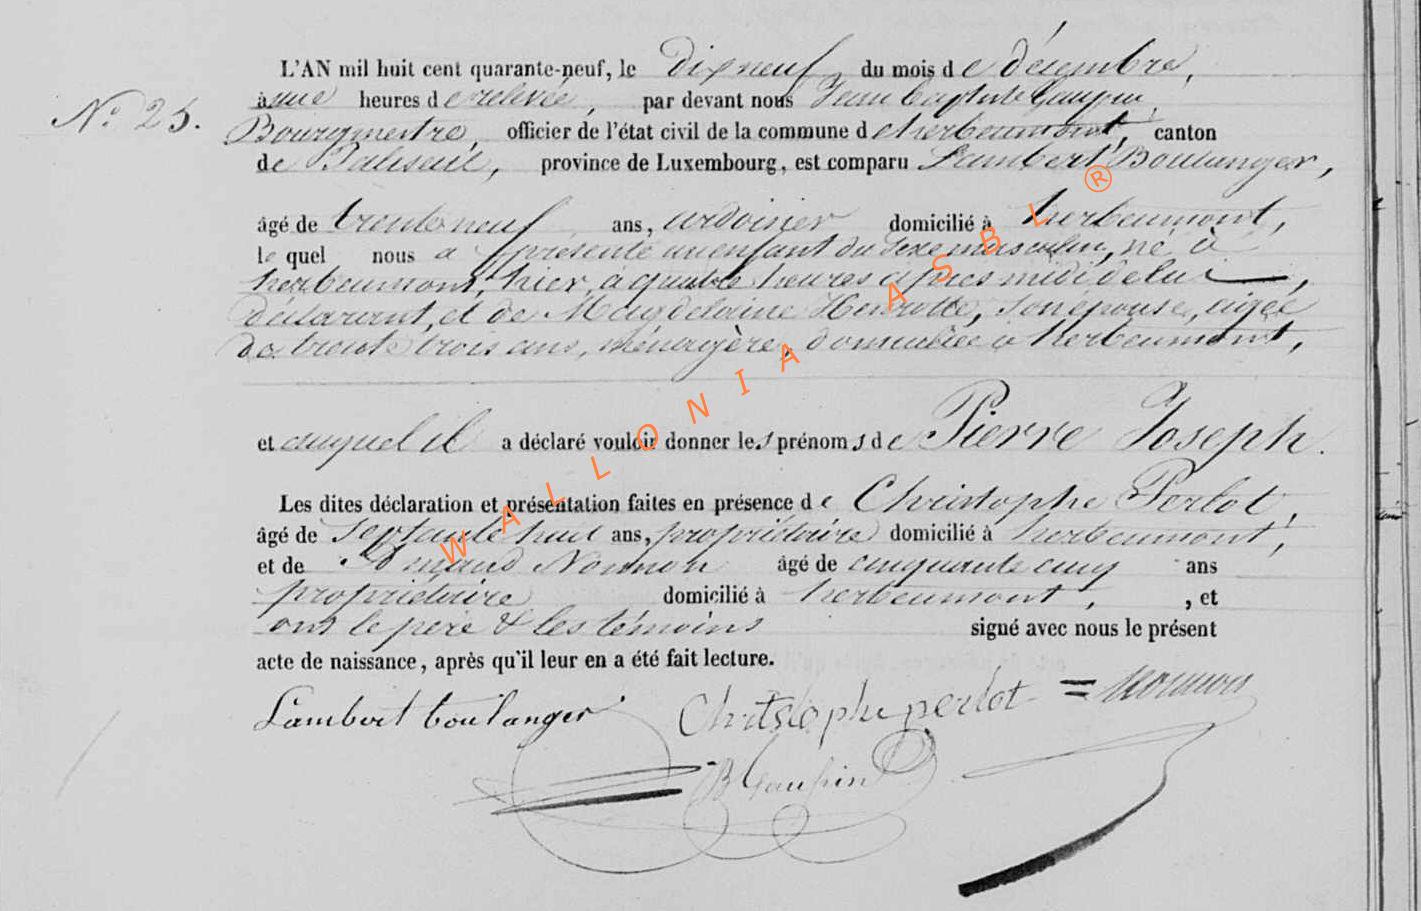 L'AN mil huit cent quarante-neuf, le Dix neuf du mois de décembre,
N.° 25. à une heures de relevée, par devant nous Jean Baptiste Gaupin,
Bourgmestre, officier de l'état civil de la commune de herbeumont, canton
de Paliseul, province de Luxembourg, est comparu Lambert Boulanger,
âgé de trente neuf ans, ardoisier domicilié à herbeumont,
le quel nous a présenté un enfant du sexe masculin, né à
herbeumont, hier, à quatre heures après midi de lui
déclarant, et de Magdelaine Henrotte, son épouse, agée
de trente trois ans, ménagère, domiciliée à herbeumont,
et auquel il a déclaré vouloir donner les prénoms de Pierre Joseph.
Les dites déclaration et présentation faites en présence de Christophe Perlot,
âgé de septante huit ans, propriétaire domicilié à herbeumont,
et de Nonnon âgé de cinquante cinq ans
propriétaire domicilié à herbeumont, , et
ont le père & les témoins signé avec nous le présent
acte de naissance, après qu'il leur en a été fait lecture.
Lambert boulanger Christophe perlot = Nonnon
JB Gaupin
WALLONIA ASBL ®